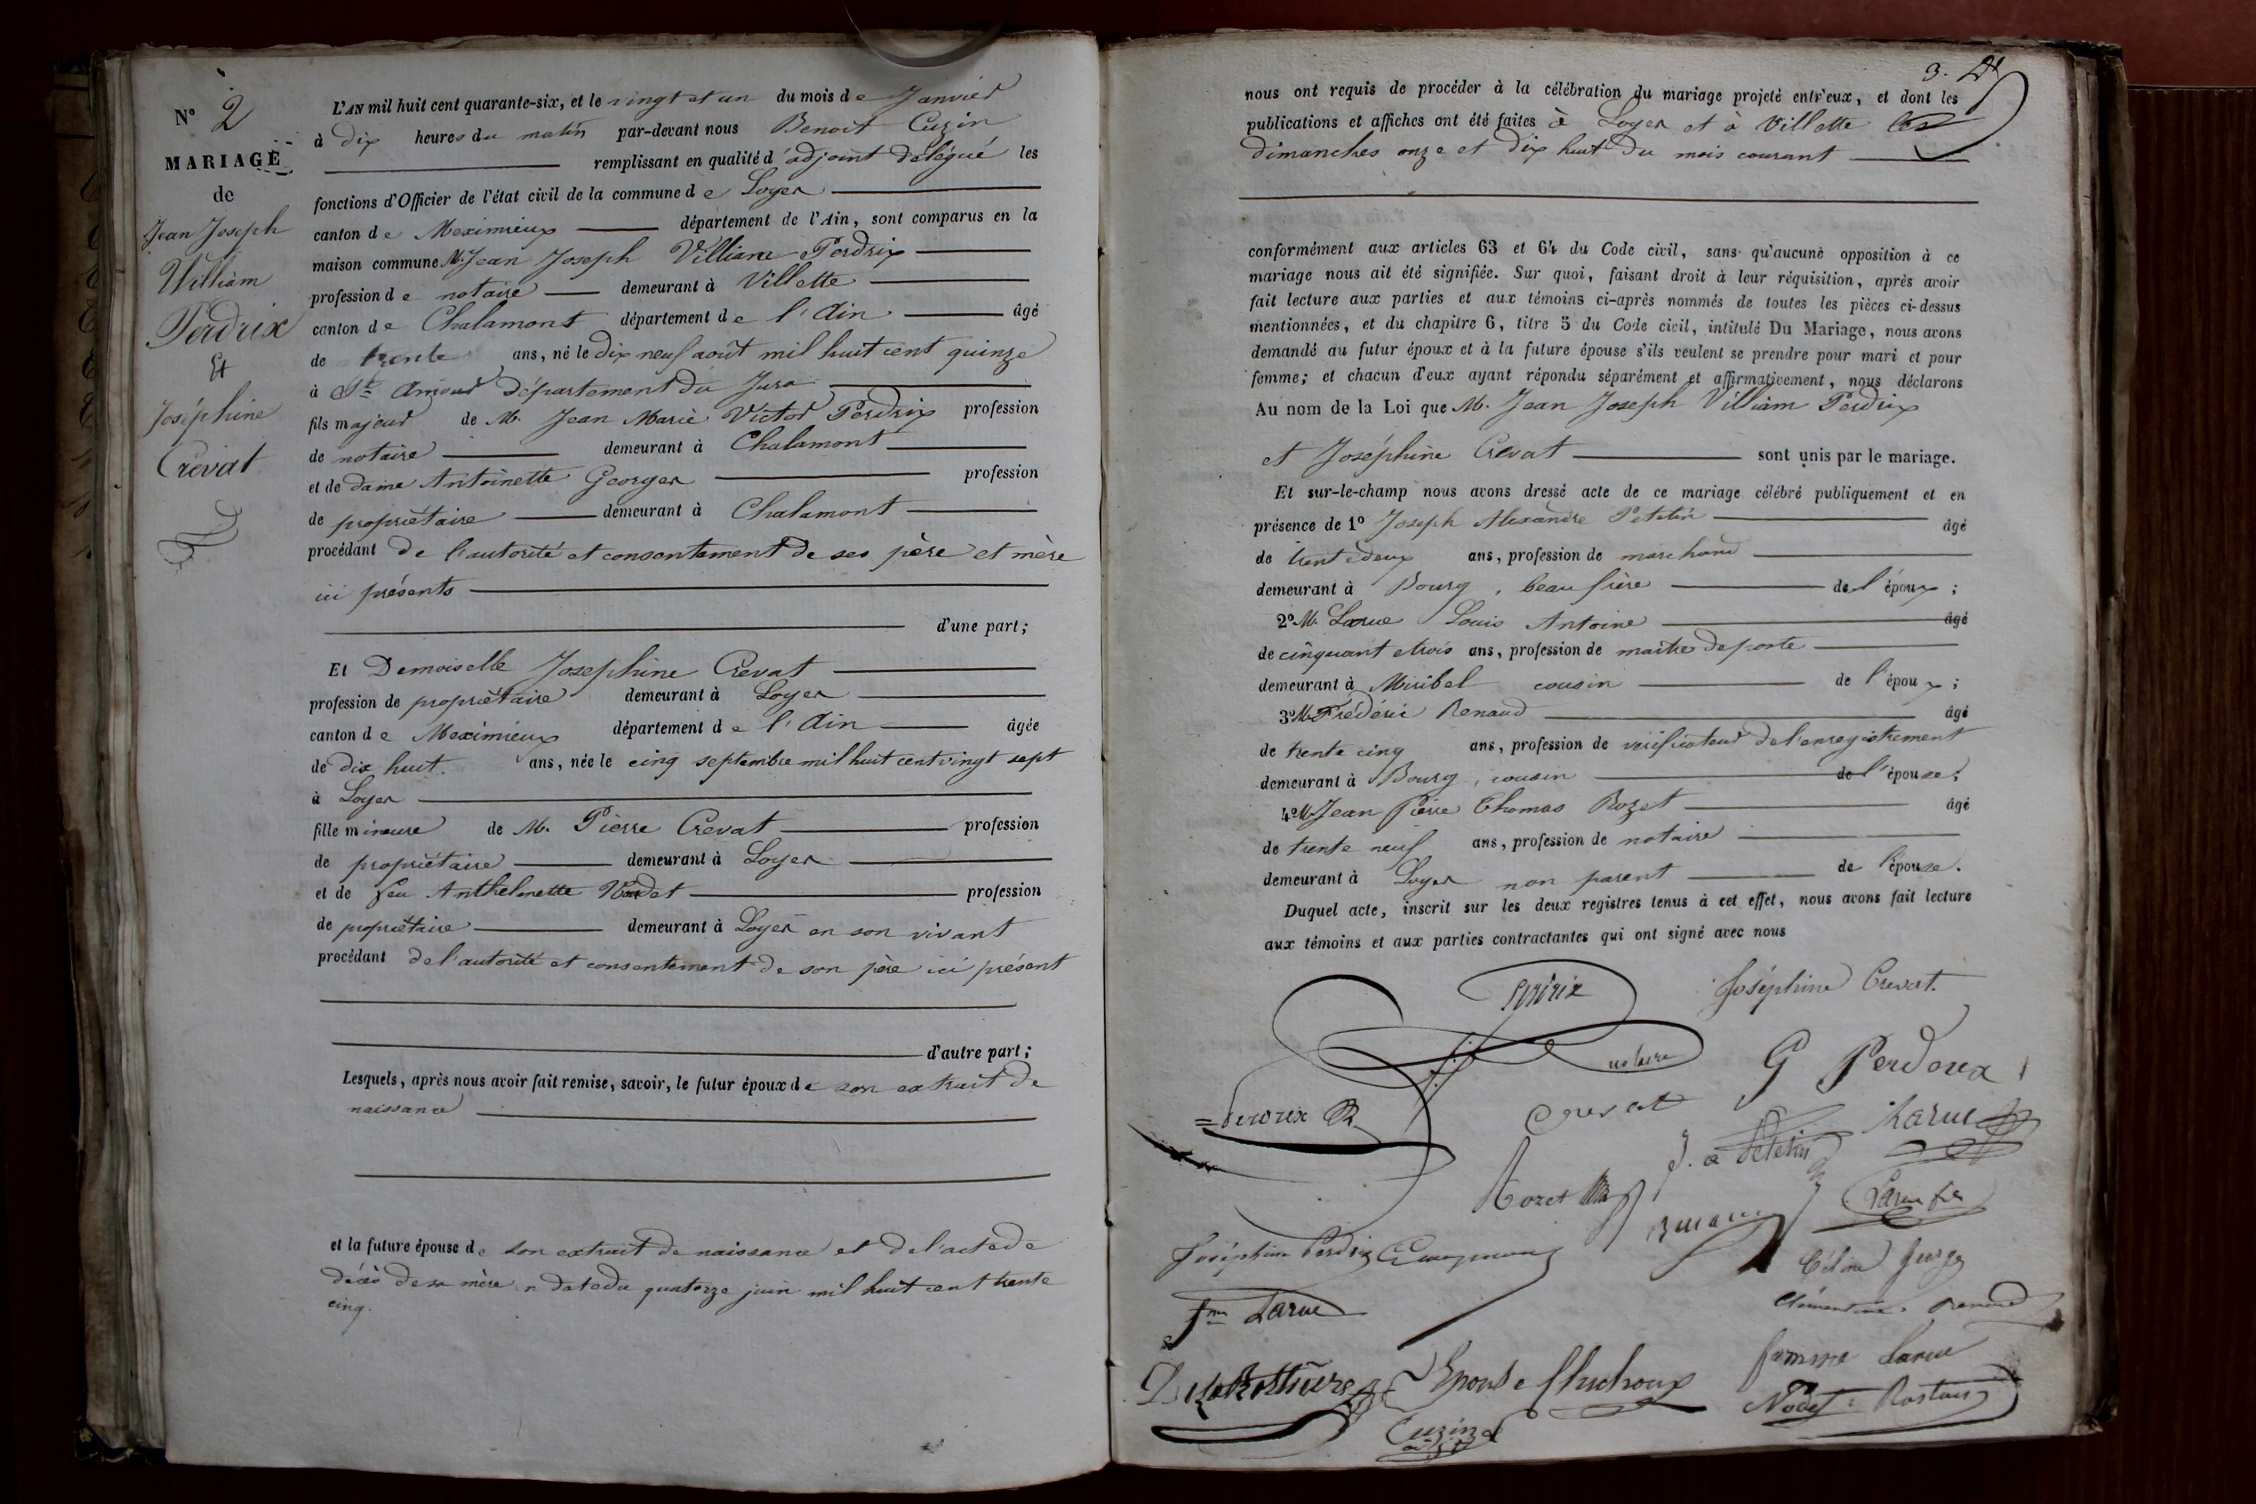 N° 2
MARIAGE
de
Jean Joseph
William
Perdrix
Et
Joséphine
Crevat
L'AN mil huit cent quarante-six, et le vingt et un du mois de Janvier
à dix heures du matin par-devant nous Benoit Cuzin
remplissant en qualité d'adjoint délégué les
fonctions d'Officier de l'état civil de la commune de Loyes
canton de Meximieux département de l'Ain, sont comparus en la
maison commune M. Jean Joseph Villiame Perdrix
profession de notaire demeurant à Villette
canton de Chalamont département de l'Ain âgé
de trente ans, né le dix neuf août mil huit cent quinze
à St Amour département du Jura
fils majeur de M. Jean Marie Victor Perdrix profession
de notaire demeurant à Chalamont
et de dame Antoinette Georges profession
de propriétaire demeurant à Chalamont
procédant de l'autorité et consentement de ses père et mère
ici présents
d'une part;
Et Demoiselle Josephine Crevat
profession de propriétaire demeurant à Loyes
canton de Meximieux département de l'Ain âgée
de dix huit ans, née le cinq septembre mil huit cent vingt sept
à Loyes
fille mineure de M. Pierre Crevat profession
de propriétaire demeurant à Loyes
et de feu Anthelmette profession
de propriétaire demeurant à Loyes en son vivant
procédant de l'autorité et consentement de son père ici présent
d'autre part;
Lesquels, après nous avoir fait remise, savoir, le futur époux de son extrait de
naissance
et la future épouse de son extrait de naissance et de l'acte de
décès de sa mère n date du quatorze juin mil huit cent trente
cinq.
3.
nous ont requis de procéder à la célébration du mariage projeté entr'eux, et dont les
publications et affiches ont été faites à Loyes et à Villette les
dimanches onze et dix huit du mois courant
conformément aux articles 63 et 64 du Code civil, sans qu'aucune opposition à ce
mariage nous ait été signifiée. Sur quoi, faisant droit à leur réquisition, après avoir
fait lecture aux parties et aux témoins ci-après nommés de toutes les pièces ci-dessus
mentionnées, et du chapitre 6, titre 5 du Code civil, intitulé Du Mariage, nous avons
demandé au futur époux et à la future épouse s'ils veulent se prendre pour mari et pour
femme; et chacun d'eux ayant répondu séparément et affirmativement, nous déclarons
Au nom de la Loi que M. Jean Joseph Villiam Perdrix
et Joséphine Crevat sont unis par le mariage.
Et sur-le-champ nous avons dressé acte de ce mariage célébré publiquement et en
présence de 1° Joseph Alexandre Petetin âgé
de trente deux ans, profession de marchand
demeurant à Bourg, beau frère de l'époux;
2° M. Larue Louis Antoine âgé
de cinquant etrois ans, profession de maître de poste
demeurant à Miribel cousin de l'époux;
3° M. Frédéric Renaud âgé
de trente cinq ans, profession de vérificateur de l'enregistrement
demeurant à Bourg, cousin de l'épouse;
4° M. Jean Pierre Thomas Rozet âgé
de trente neuf ans, profession de notaire
demeurant à Loyes non parent de l'épouse.
Duquel acte, inscrit sur les deux registres tenus à cet effet, nous avons fait lecture
aux témoins et aux parties contractantes qui ont signé avec nous
Perdrix
Joséphine Crevat.
notaire
G Perdrix
Perdrix
Crevat
Larue
J. a Petetin
Rozet
Larue fils
Renaud
Joséphine Perdrix
Céline Georges
fme Larue
Clémentine Renaud
femme Larue
Epouse
Cuzin